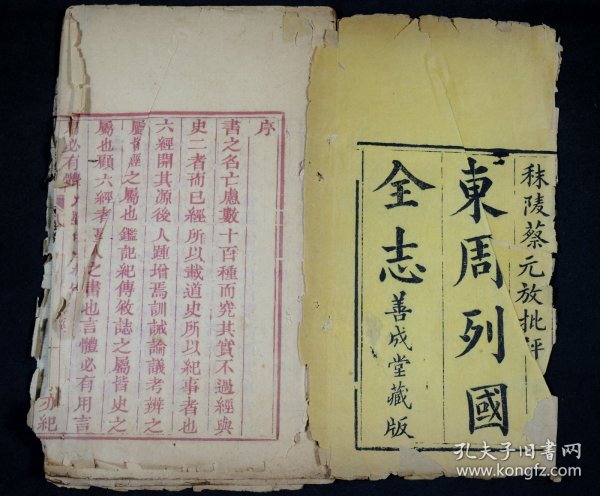 秣陵蔡元放批評
東周列國
全志
善成堂藏版
序
書之名亡慮數十百種而究其實不過經與
史二者而已經所以載道史所以紀事者也
六經開其源後人踵增焉訓誡論議考辨之
屬皆經之屬也鑑記紀傳敘誌之屬皆史之
屬也顧六經者聖人之書也言體必有用言
必有體
亦紀
孔夫子旧书网
www.kongfz.com